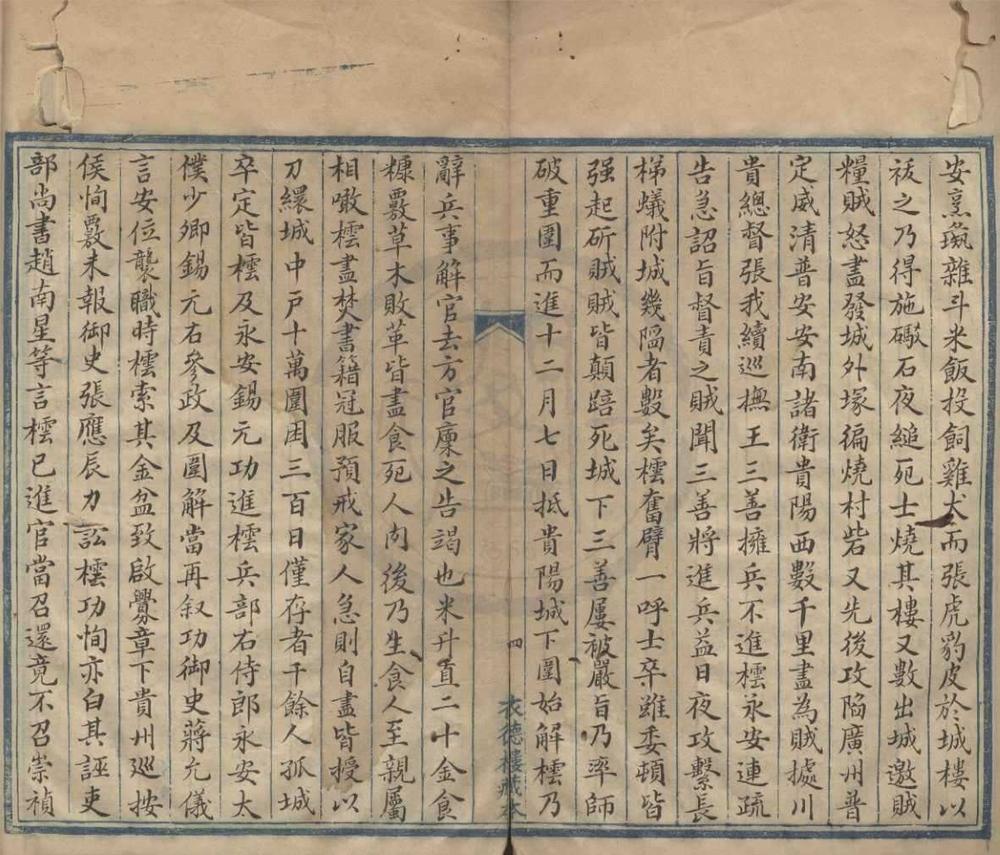 安烹㼎雜斗米飯投飼雞犬而張虎豹皮於城樓以
祓之乃得施礟石夜縋死士燒其樓又數出城邀賊
糧賊怒盡發城外塚徧燒村砦又先後攻陷廣州普
定威清普安安南諸衛貴陽西數千里盡為賊據川
貴總督張我續巡撫王三善擁兵不進橒永安連疏
告急詔旨督責之賊聞三善將進兵益日夜攻繫長
梯蟻附城幾陷者數矣橒奮臂一呼士卒雖委頓皆
强起斫賊賊皆顛踣死城下三善屢被嚴旨乃率師
破重圍而進十二月七日抵貴陽城下圍始解橒乃
四
衣德樓藏本
辭兵事解官去方官廩之告竭也米升直二十金食
糠覈草木敗革皆盡食死人肉後乃生食人至親屬
相噉橒盡焚書籍冠服預戒家人急則自盡皆授以
刀繯城中戸十萬圍困三百日僅存者千餘人孤城
卒定皆橒及永安錫元功進橒兵部右侍郎永安太
僕少卿錫元右參政及圍解當再叙功御史蔣允儀
言安位襲職時橒索其金盆致啟釁章下貴州巡按
侯恂覈未報御史張應辰力訟橒功恂亦白其誣吏
部尚書趙南星等言橒已進官當召還竟不召崇禎